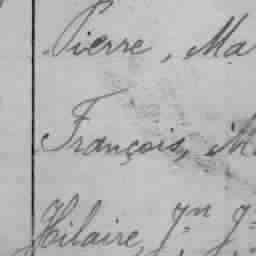 Pierre, Ma
François, M
Hilaire,